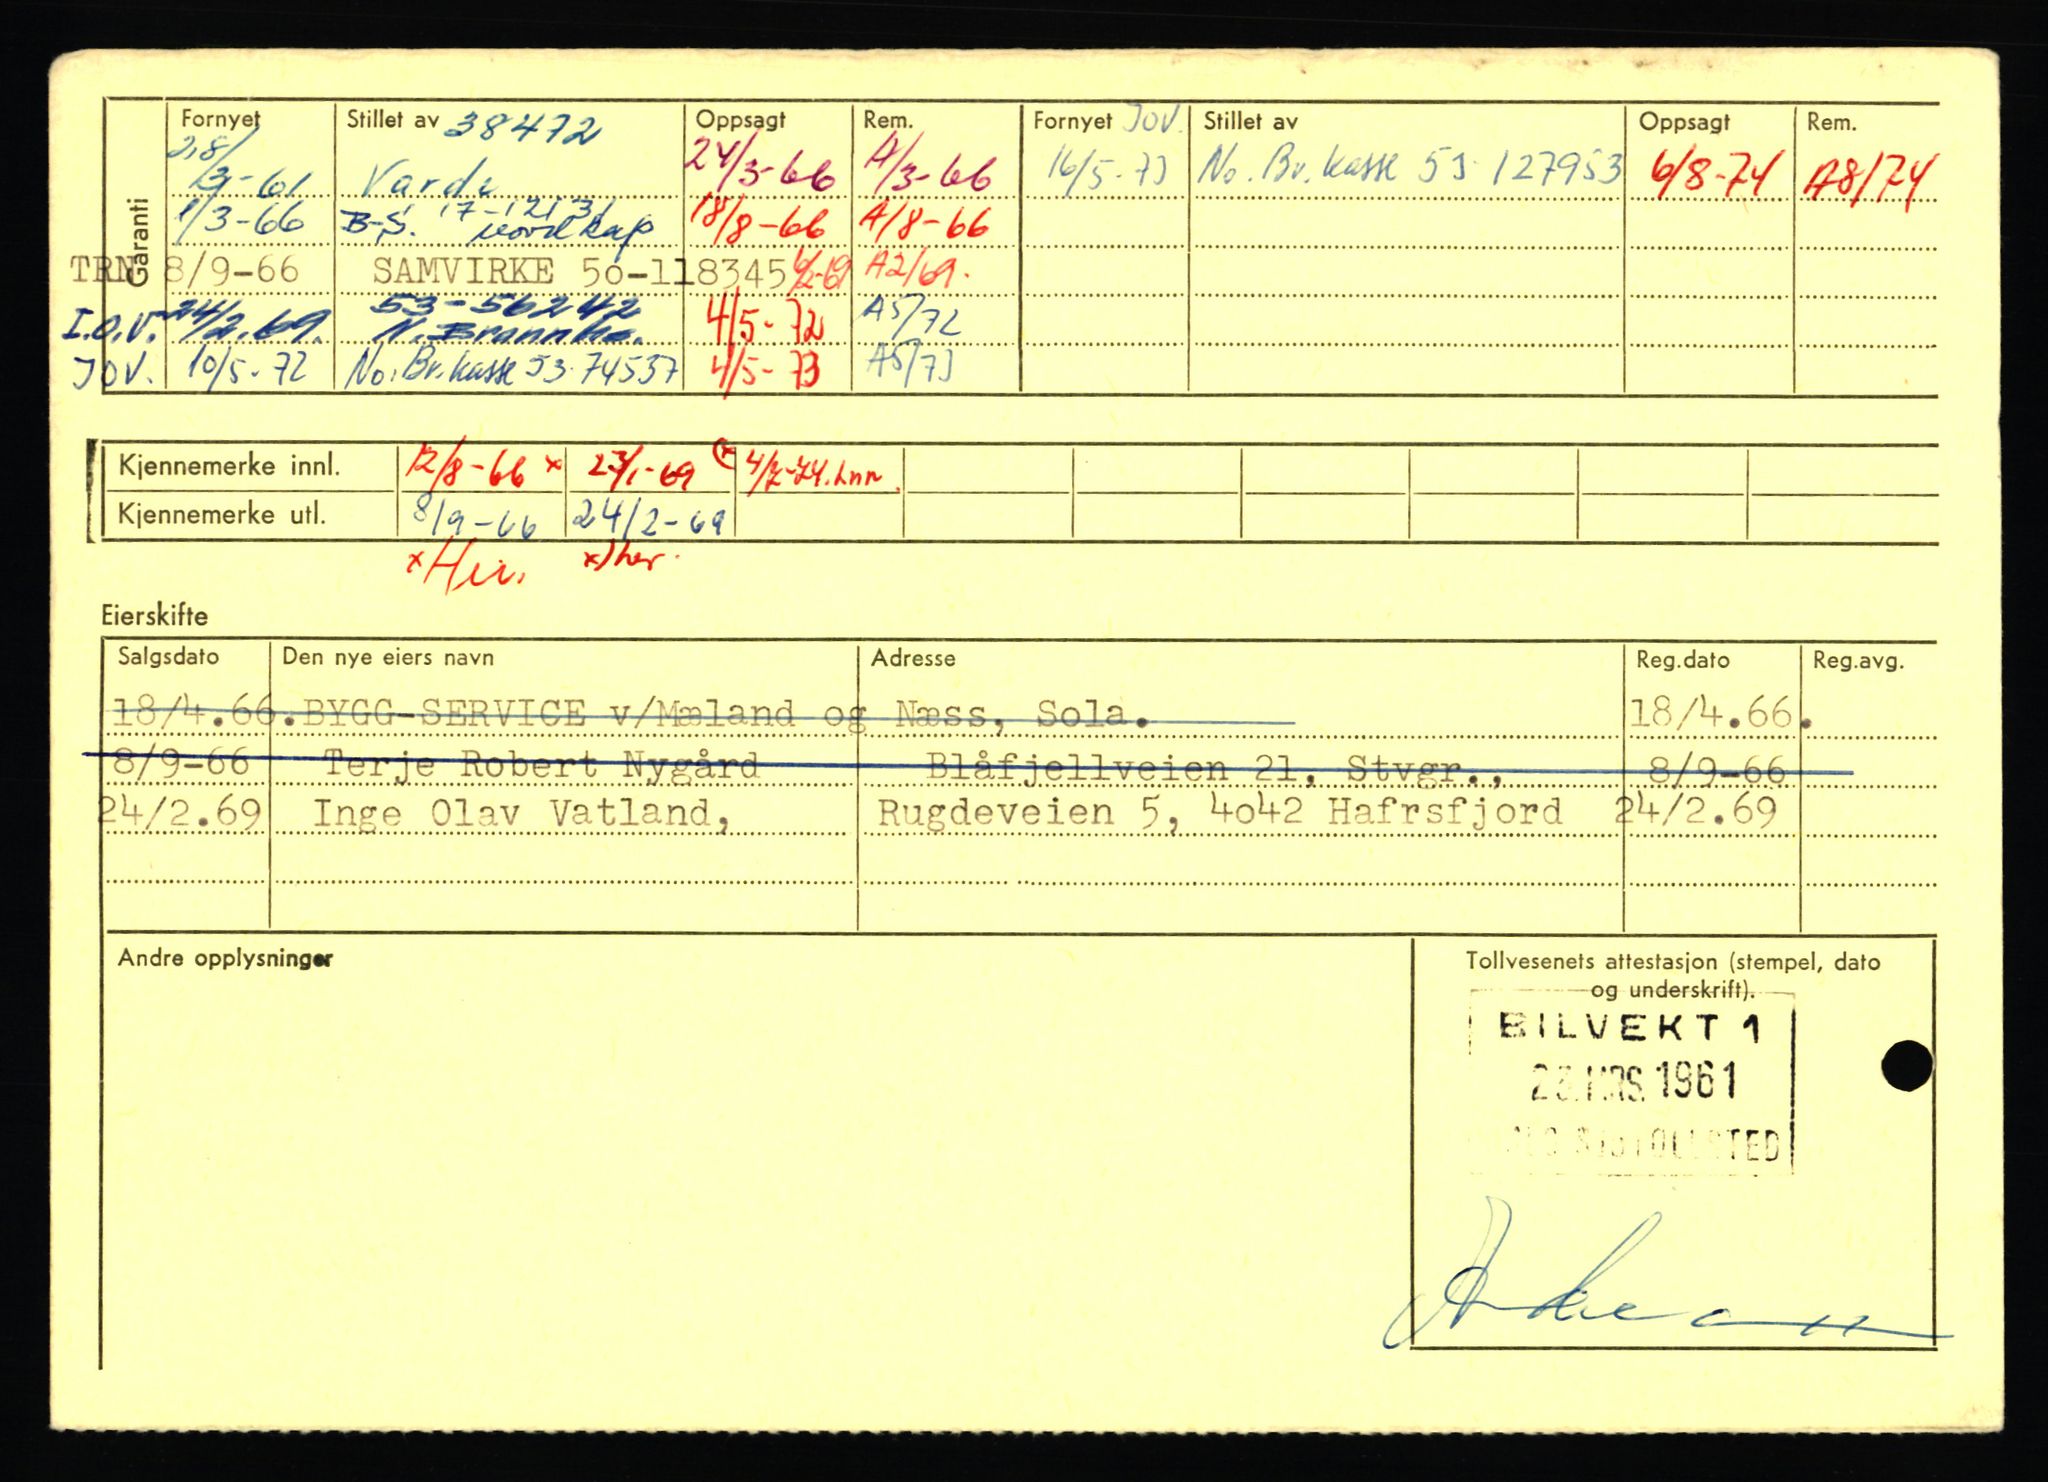 Garanti Fornyet Stillet av 38472 Oppsagt Rem. Fornyet JOV. Stillet av Oppsagt Rem.
28/3-61 Vardi 24/3-66 A/3-66 16/5-73 No. Br. kasse 53 127953 6/8-74 A8/74
1/3-66 B-S. 17-12131 Nordkap 18/8-66 A/8-66
TRN 8/9-66 SAMVIRKE 5o-118345 6/2-69 A2/69.
I.O.V. 24/2.69. 53-56242 N. Brannka. 4/5-72 A5/72
JOV. 10/5-72 No. Br. kasse 53-74537 4/5-73 A5/73
Kjennemerke innl. 12/8-66 x 23/1-69 (x 4/7-74.Lnn.
Kjennemerke utl. 8/9-66 24/2-69
x Her. x) her.
Eierskifte
Salgsdato Den nye eiers navn Adresse Reg.dato Reg.avg.
18/4.66. BYGG-SERVICE v/Mæland og Næss, Sola. 18/4.66.
8/9-66 Terje Robert Nygård Blåfjellveien 21, Stvgr., 8/9-66
24/2.69 Inge Olav Vatland, Rugdeveien 5, 4o42 Hafrsfjord 24/2.69
Andre opplysninger
Tollvesenets attestasjon (stempel, dato
og underskrift).
BILVEKT 1
23.MRS.1961